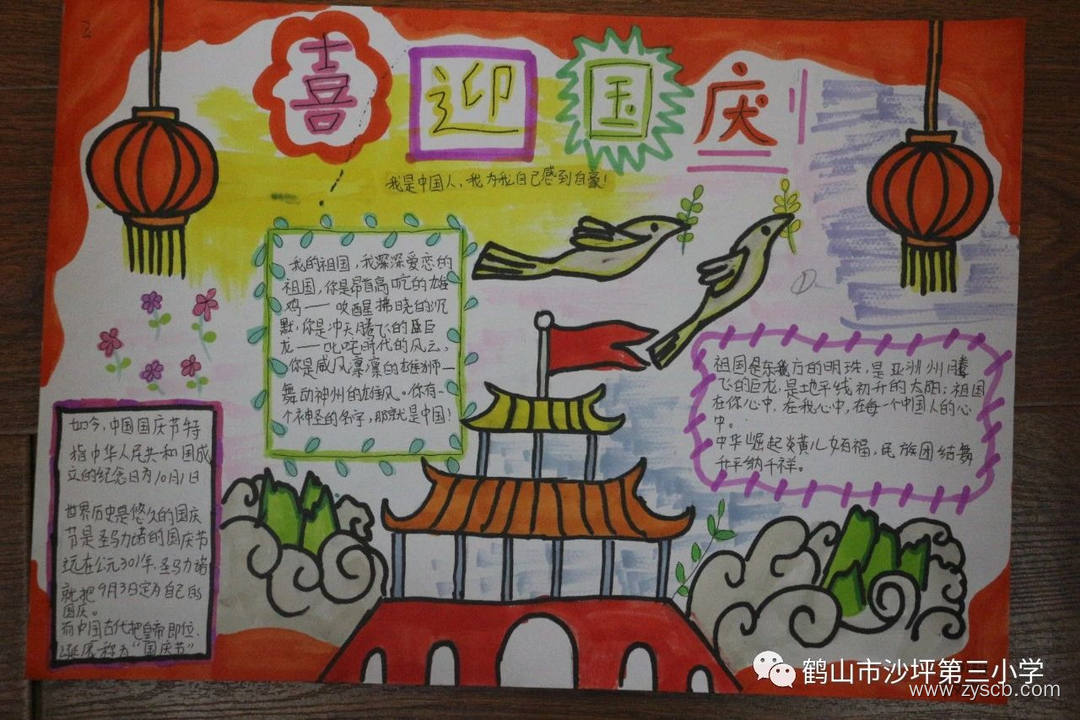 喜迎国庆
我是中国人，我为我自己感到自豪！
我的祖国，我深深爱恋的
祖国，你是昂首高吭的雄
鸡——唤醒拂晓的沉
默，你是冲天腾飞的巨
龙——叱咤时代的风云，
你是威风凛凛的雄狮—
舞动神州的雄风。你有一
个神圣的名字，那就是中国！
祖国是东方的明珠，是亚洲腾
飞的巨龙，是地平线初升的太阳；祖国
在你心中，在我心中，在每一个中国人的心
中。
中华崛起炎黄儿女福，民族团结舞
升平纳千祥。
如今，中国国庆节特
指中华人民共和国成
立的纪念日为10月1日
世界历史最悠久的国庆
节是圣马力诺的国庆节
远在公元301年，圣马力诺
就把9月3日定为自己的
国庆。
中国古代把皇帝即位、
诞辰称为“国庆节”
鹤山市沙坪第三小学
www.zyscb.com